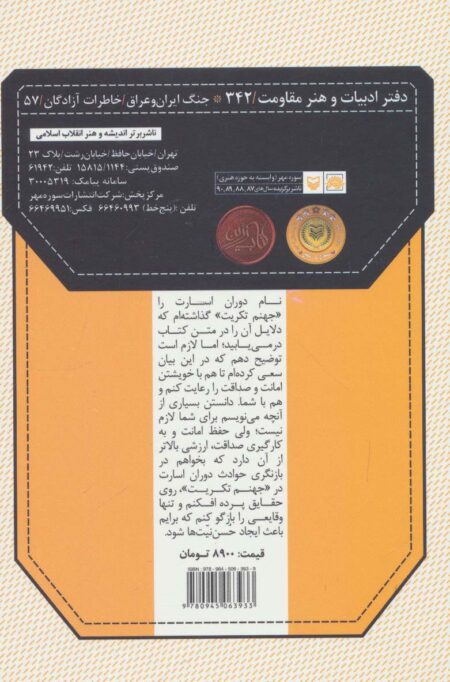 دفتر ادبیات و هنر مقاومت/۳۴۲ * جنگ ایران‌وعراق/خاطرات آزادگان/۵۷
ناشر برتر اندیشه و هنر انقلاب اسلامی
تهران/خیابان‌حافظ/خیابان‌رشت/پلاک ۲۳
صندوق‌پستی: ۱۵۸۱۵/۱۱۴۴ تلفن: ۶۱۹۴۲
سامانه پیامک: ۳۰۰۰۵۳۱۹
مرکز پخش: شرکت‌انتشارات‌سوره‌مهر
تلفن: (پنج‌خط) ۶۶۴۶۰۹۹۳ فکس: ۶۶۴۶۹۹۵۱
سوره‌مهر (وابسته به حوزه هنری)
ناشر برگزیده سال‌های ۸۷، ۸۸، ۸۹، ۹۰
نام دوران اسارت را
«جهنم تکریت» گذاشته‌ام که
دلایل آن را در متن کتاب
درمی‌یابید؛ اما لازم است
توضیح دهم که در این بیان
سعی کرده‌ام تا هم با خویشتن
امانت و صداقت را رعایت کنم و
هم با شما. دانستن بسیاری از
آنچه می‌نویسم برای شما لازم
نیست؛ ولی حفظ امانت و به
کارگیری صداقت، ارزشی بالاتر
از آن دارد که بخواهم در
بازنگری حوادث دوران اسارت
در «جهنم تکریت»، روی
حقایق پرده افکنم و تنها
وقایعی را بازگو کنم که برایم
باعث ایجاد حُسن‌نیّت‌ها شود.
قیمت: ۸۹۰۰ تومان
ISBN: 978-964-506-393-9
9 780945 063933